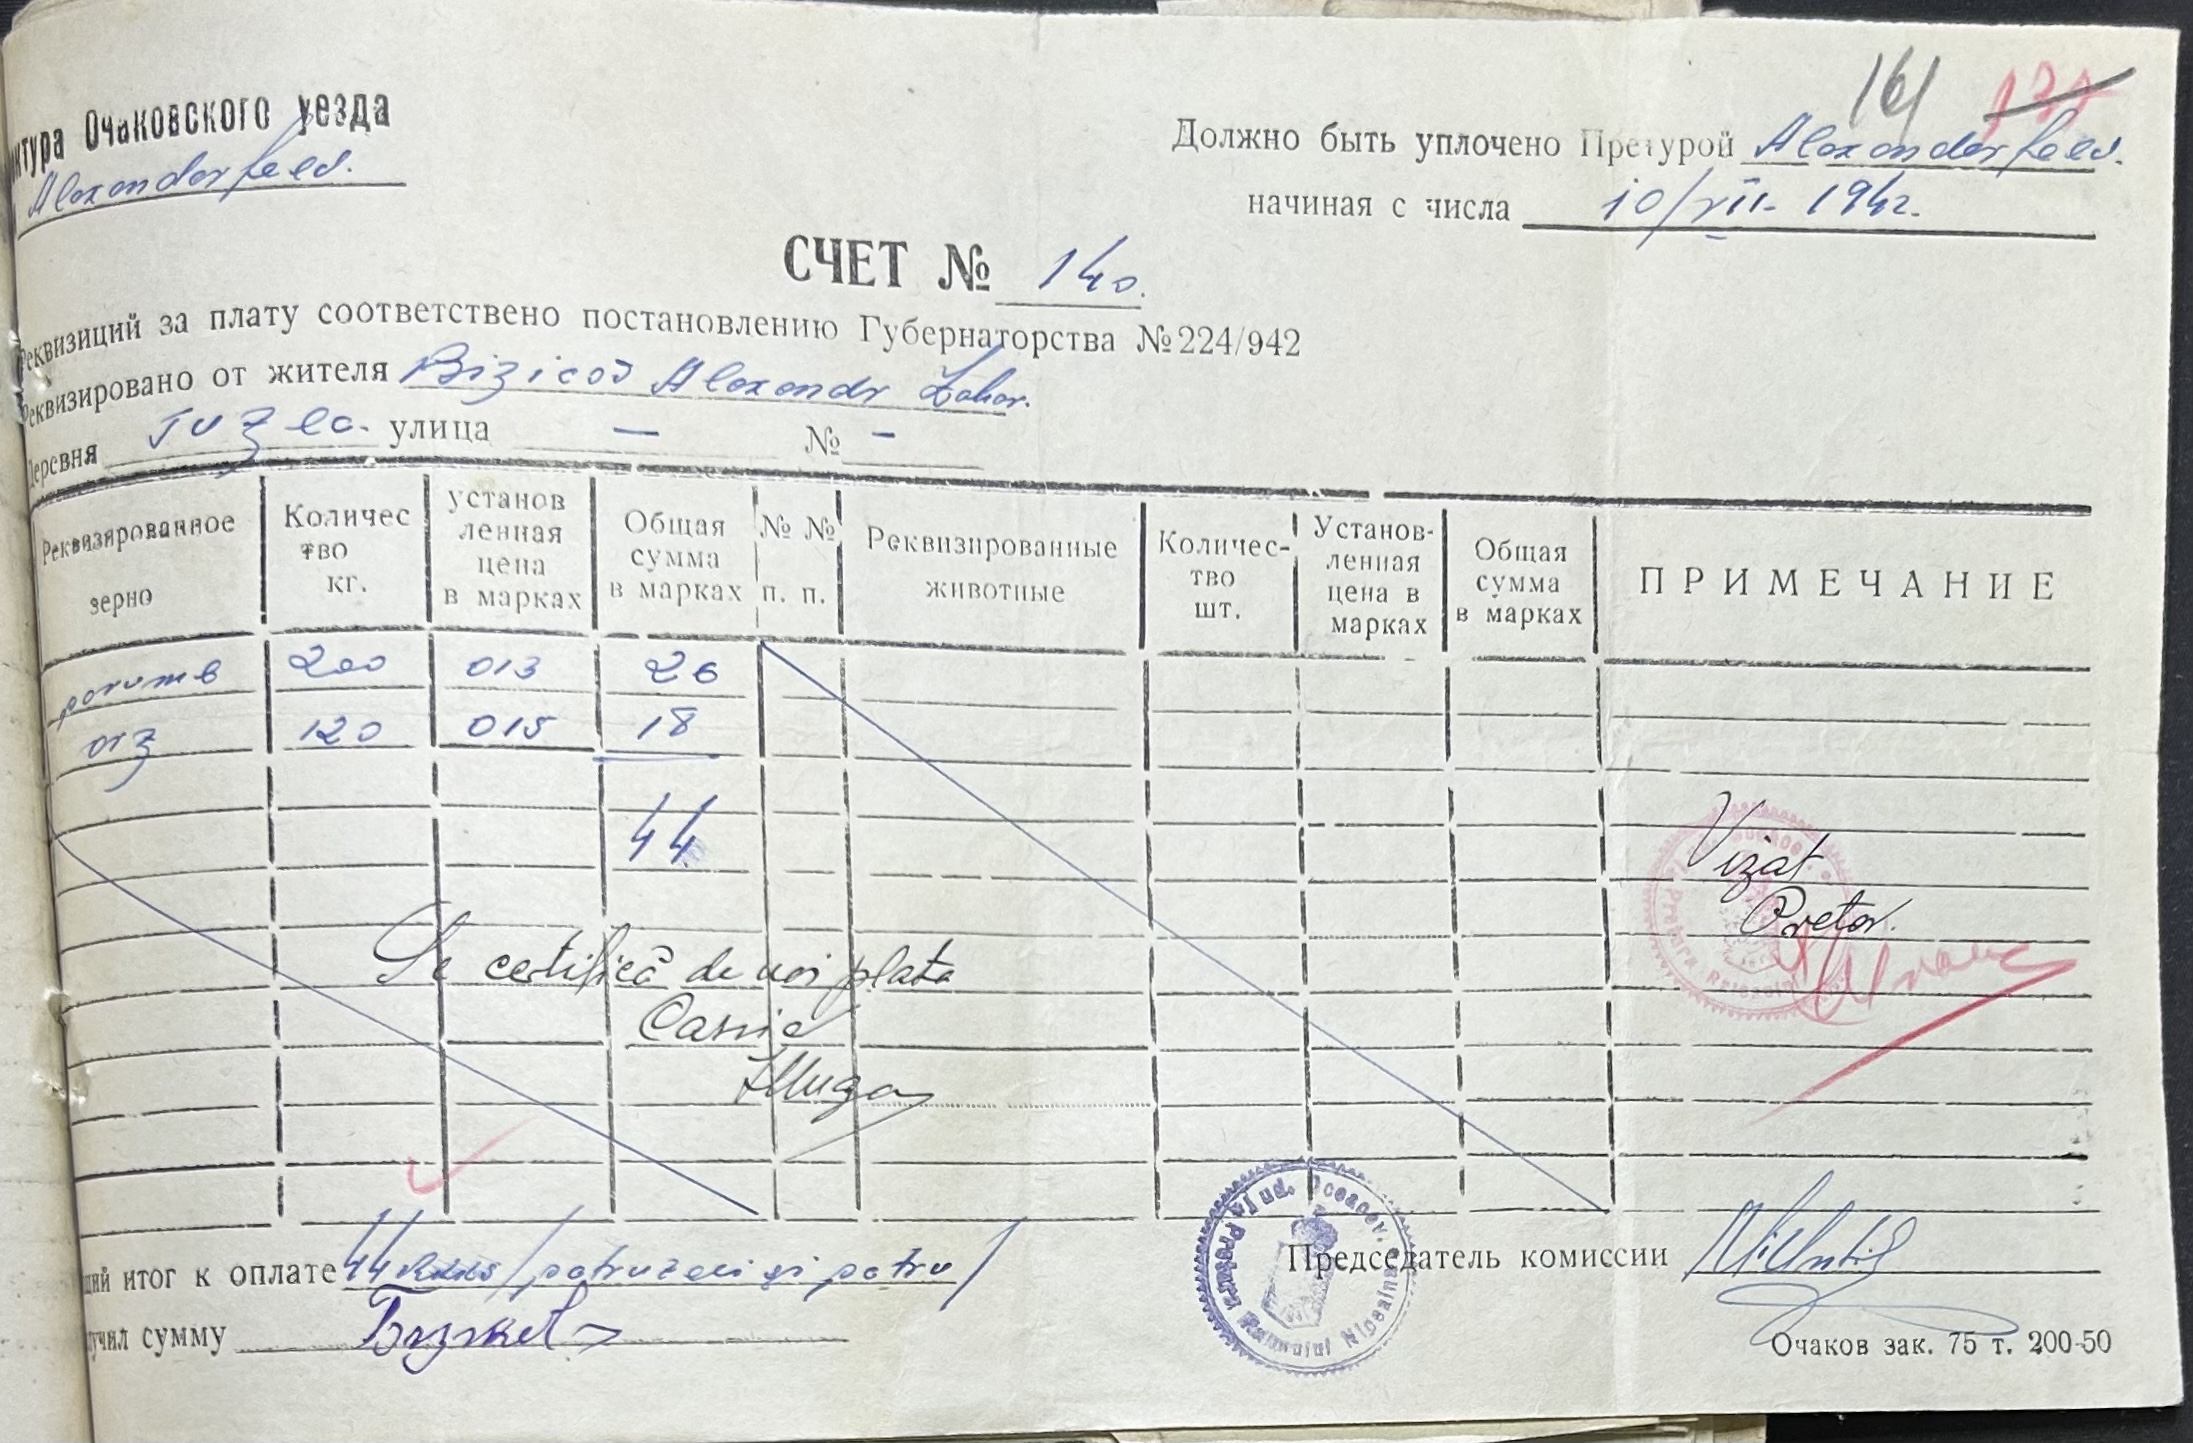 ктура Очаковского уезда
Alexanderfeld.
161
Должно быть уплочено Претурой Alexanderfeld.
начиная с числа 10/VII. 1942.
СЧЕТ № 140.
Реквизиций за плату соответствено постановлению Губернаторства № 224/942
Реквизировано от жителя Bizicov Alexandr Zahar.
Деревня Tuzla. улица — № -
Реквизированное зерно
Количес тво кг.
установ ленная цена в марках
Общая сумма в марках
№ № п. п.
Реквизированные животные
Количес- тво шт.
Установ- ленная цена в марках
Общая сумма в марках
ПРИМЕЧАНИЕ
porumb 200 013 26
orz 120 015 18
44
Vizat
Pretor.
Se certifică de noi plata
Casier
щий итог к оплате 44 /patruzeci și patru/
учил сумму
Jud. Oceacov.
Председатель комиссии
Очаков зак. 75 т. 200-50